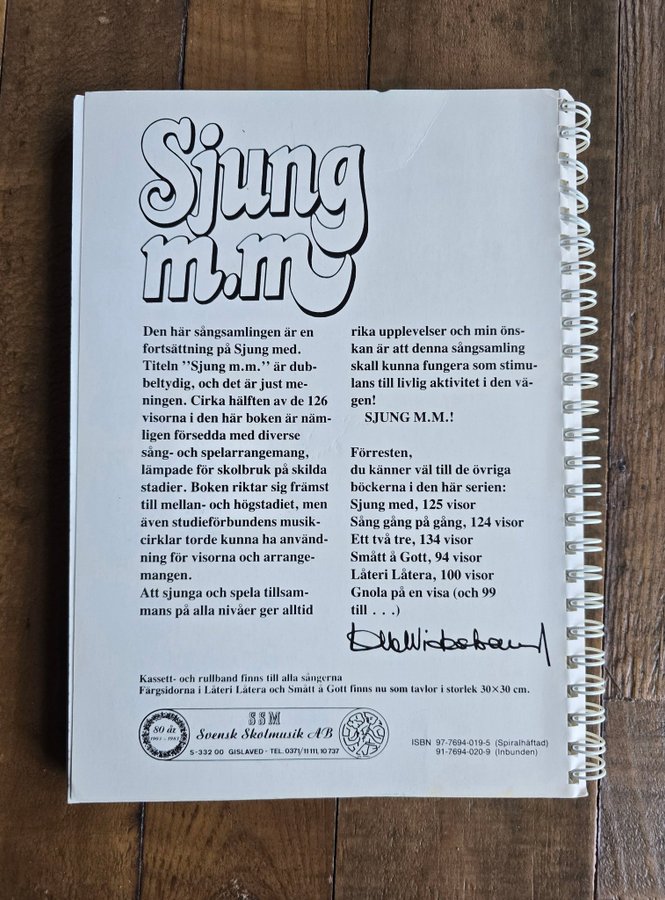 Sjung
m.m
Den här sångsamlingen är en
fortsättning på Sjung med.
Titeln ”Sjung m.m.” är dub-
beltydig, och det är just me-
ningen. Cirka hälften av de 126
visorna i den här boken är näm-
ligen försedda med diverse
sång- och spelarrangemang,
lämpade för skolbruk på skilda
stadier. Boken riktar sig främst
till mellan- och högstadiet, men
även studieförbundens musik-
cirklar torde kunna ha använd-
ning för visorna och arrange-
mangen.
Att sjunga och spela tillsam-
mans på alla nivåer ger alltid
rika upplevelser och min öns-
kan är att denna sångsamling
skall kunna fungera som stimu-
lans till livlig aktivitet i den vä-
gen!
SJUNG M.M.!
Förresten,
du känner väl till de övriga
böckerna i den här serien:
Sjung med, 125 visor
Sång gång på gång, 124 visor
Ett två tre, 134 visor
Smått å Gott, 94 visor
Låteri Låtera, 100 visor
Gnola på en visa (och 99
till . . .)
Kassett- och rullband finns till alla sångerna
Färgsidorna i Låteri Låtera och Smått å Gott finns nu som tavlor i storlek 30×30 cm.
80 år
SSM
Svensk Skolmusik AB
S-332 00 GISLAVED - TEL. 0371/11 111, 10 737
ISBN 97-7694-019-5 (Spiralhäftad)
91-7694-020-9 (Inbunden)